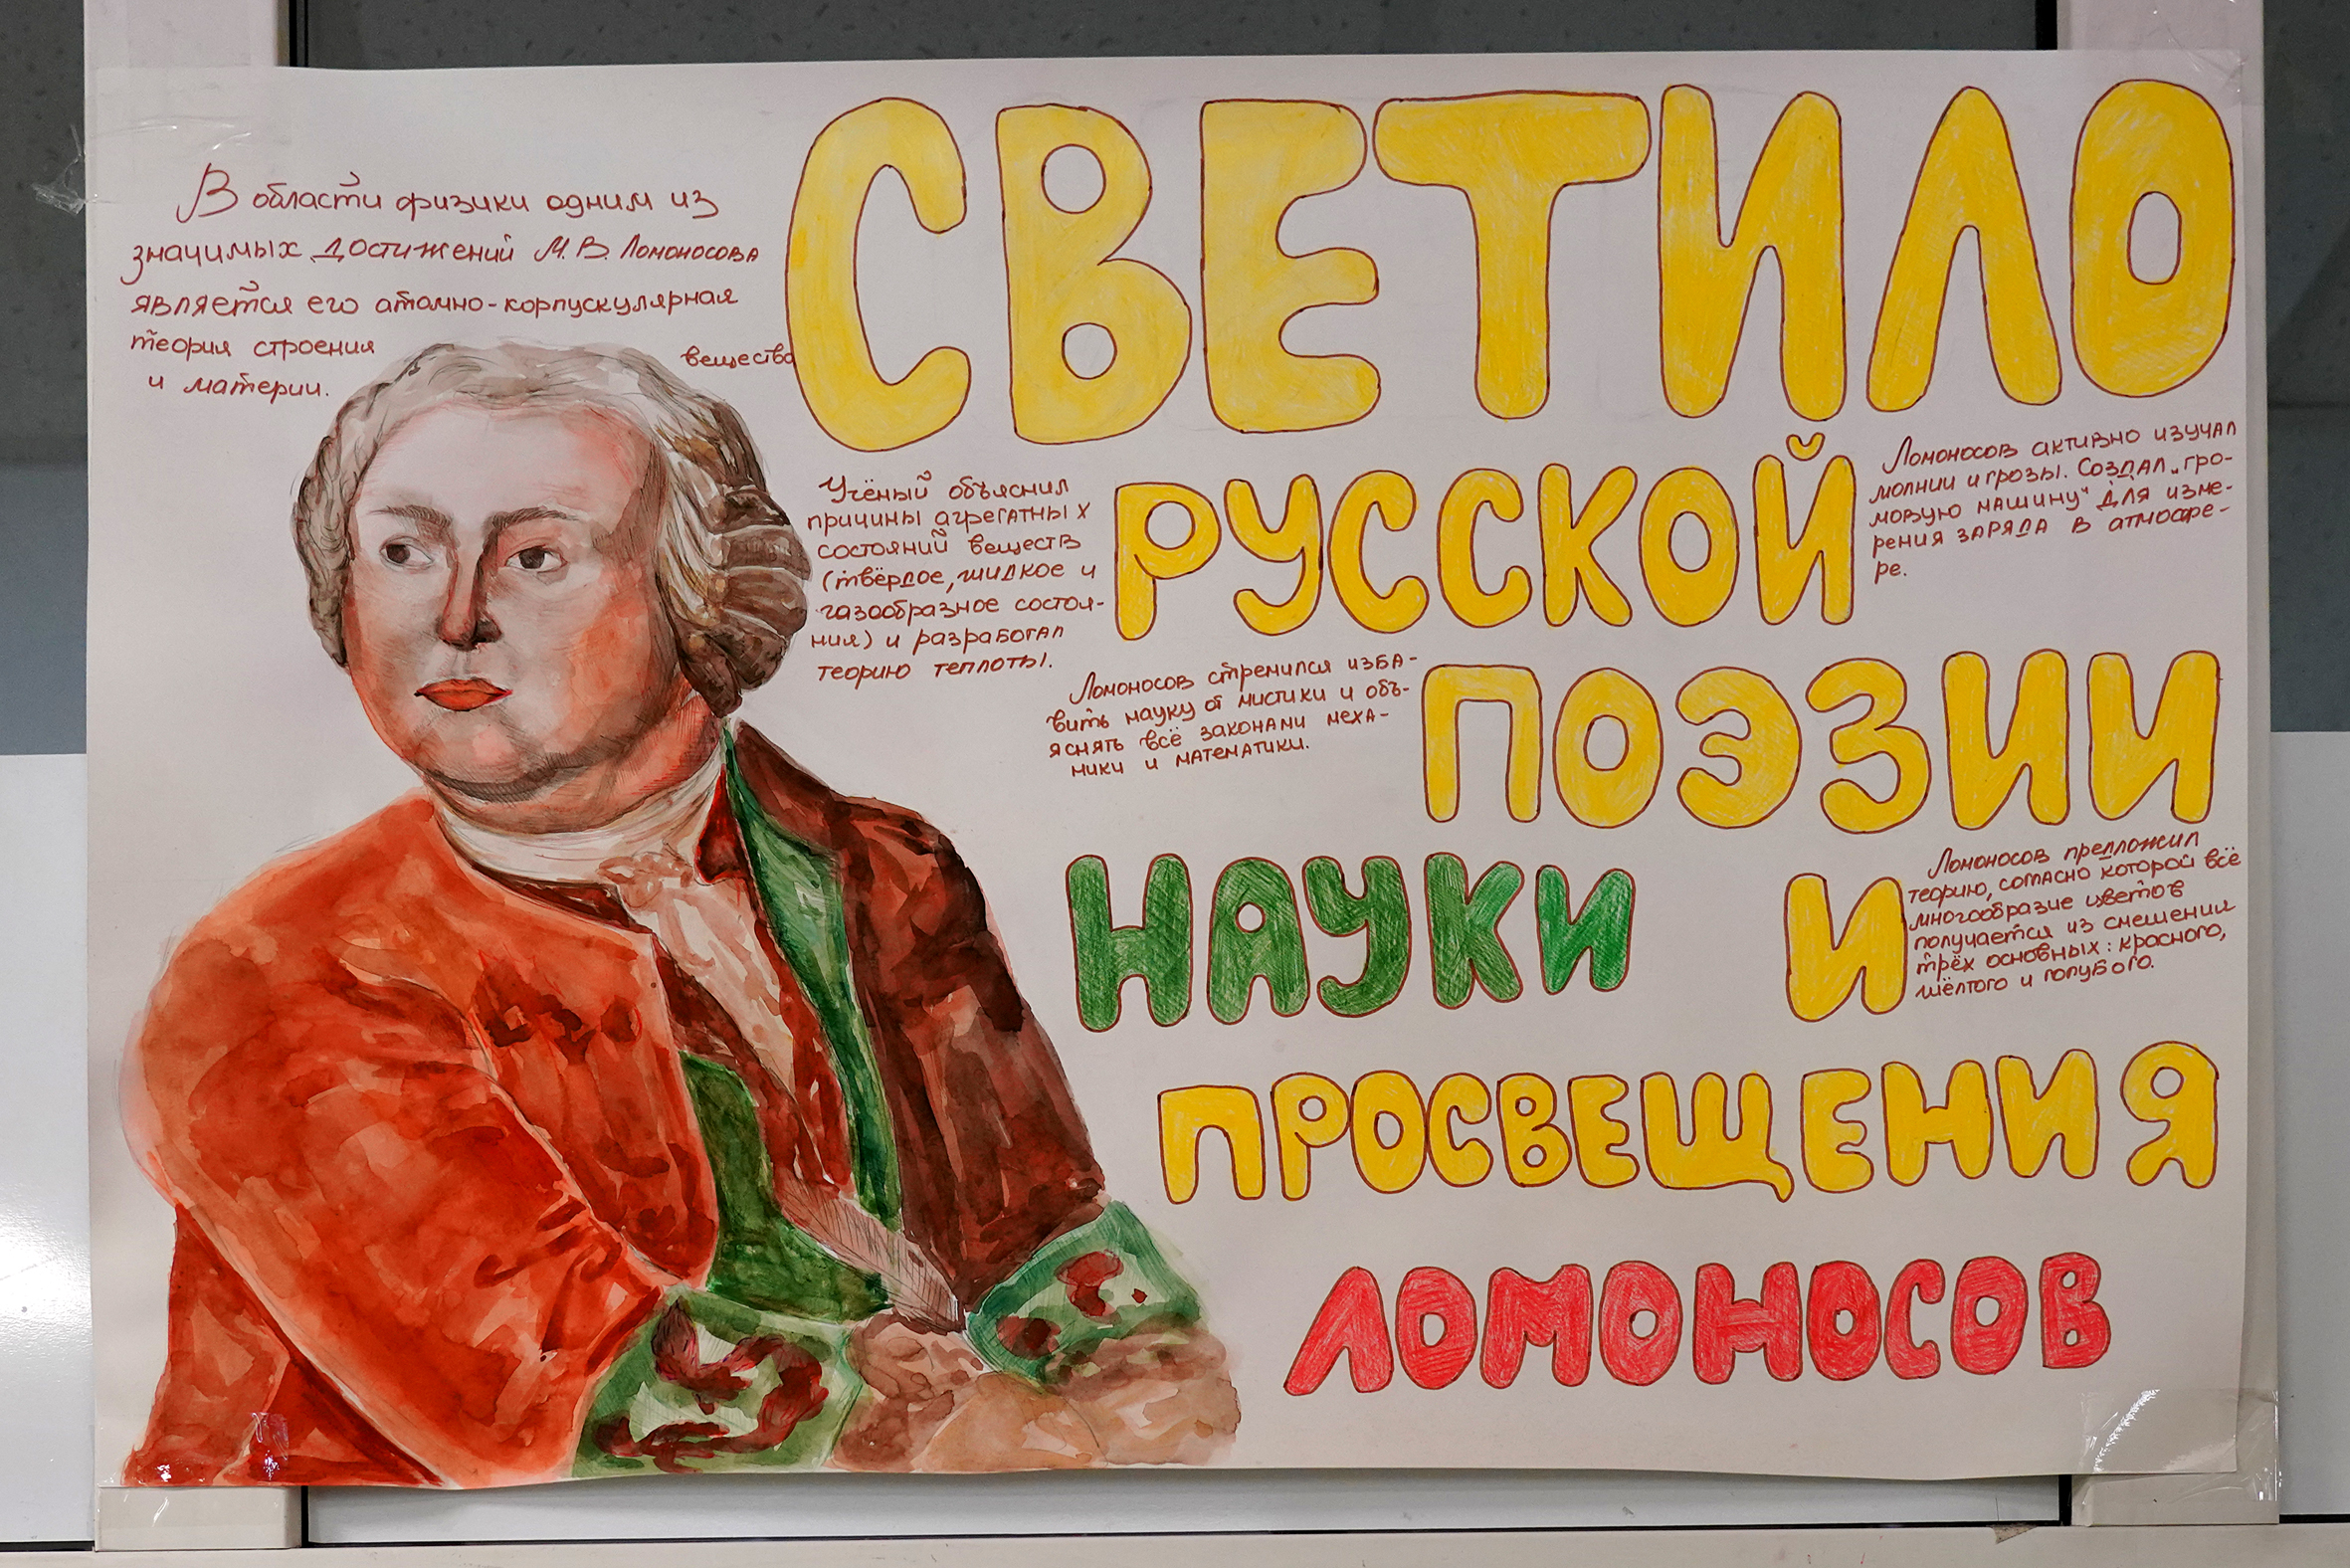 В области физики одним из
значимых достижений М.В. Ломоносова
является его атомно-корпускулярная
теория строения вещества
и материи.
СВЕТИЛО
Учёный объяснил
причины агрегатных
состояний веществ
(твёрдое, жидкое и
газообразное состоя-
ния) и разработал
теорию теплоты.
РУССКОЙ
Ломоносов активно изучал
молнии и грозы. Создал „гро-
мовую машину“ для изме-
рения заряда в атмосфе-
ре.
Ломоносов стремился изба-
вить науку от мистики и объ-
яснять всё законами меха-
ники и математики.
ПОЭЗИИ
НАУКИ И
Ломоносов предложил
теорию, согласно которой всё
многообразие цветов
получается из смешении
трёх основных: красного,
жёлтого и голубого.
ПРОСВЕЩЕНИЯ
ЛОМОНОСОВ